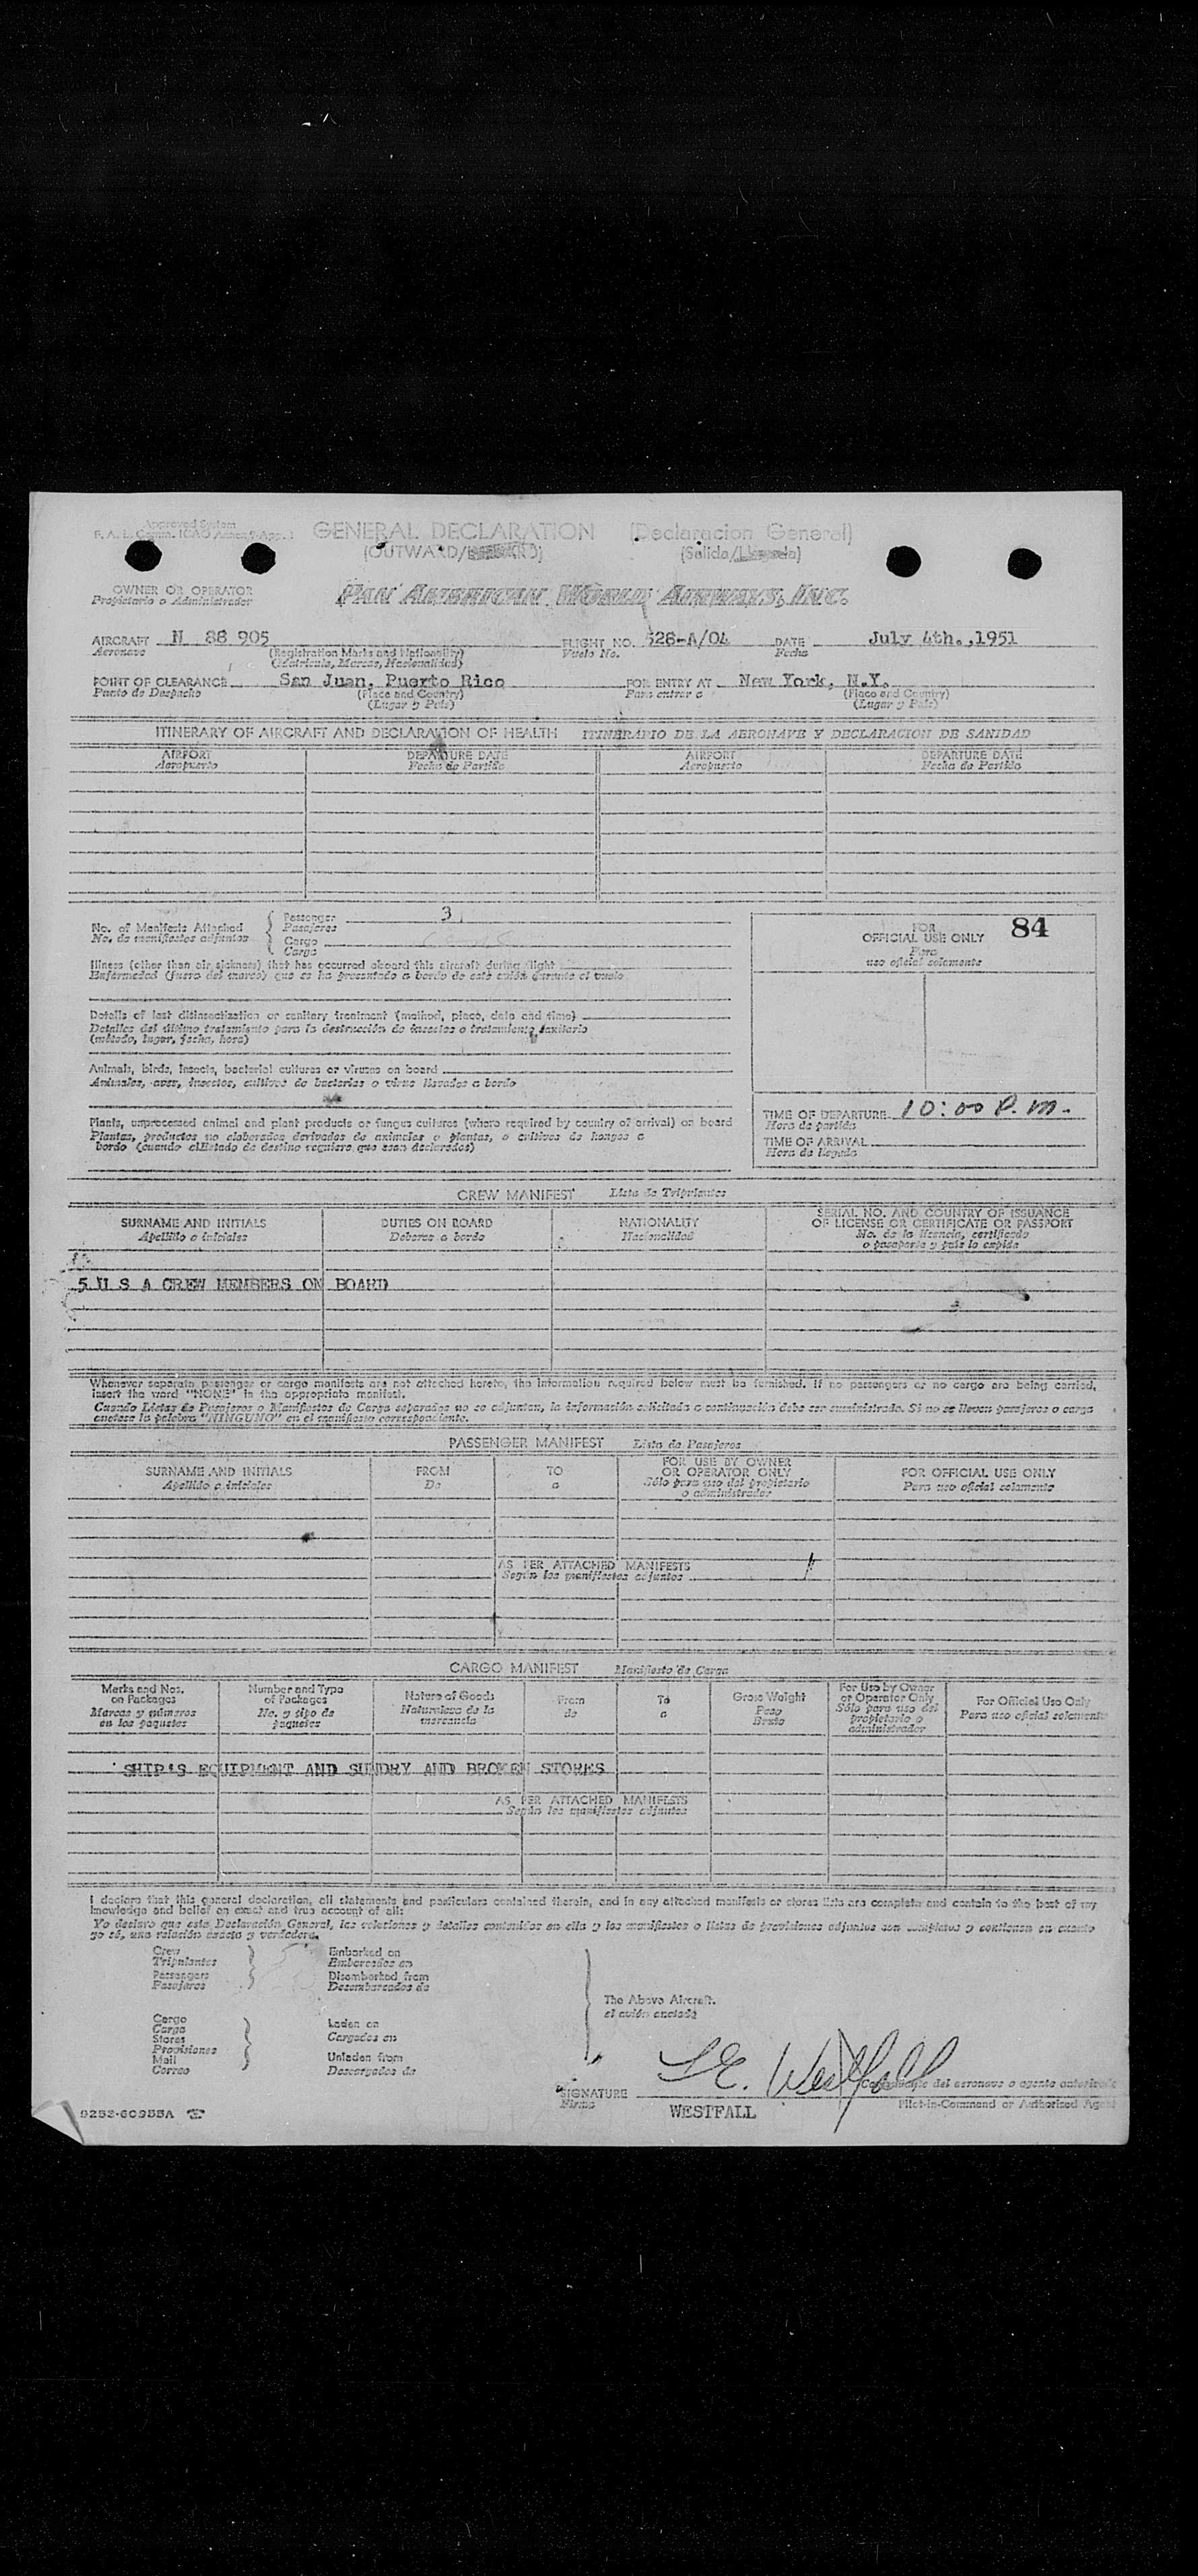 Approved System
F. A. L. Comm. ICAO Annex 9 App. 1
GENERAL DECLARATION (Declaracion General)
(OUTWARD/INWARD) (Salida/Llegada)
OWNER OR OPERATOR
Propietario o Administrador
PAN AMERICAN WORLD AIRWAYS, INC.
AIRCRAFT N 88 905 FLIGHT NO. 526-A/04 DATE July 4th.,1951
Aeronave (Registration Marks and Nationality) Vuelo No. Fecha
(Matricula, Marcas, Nacionalidad)
POINT OF CLEARANCE San Juan, Puerto Rico FOR ENTRY AT New York, N.Y.
Punto de Despacho (Place and Country) Para entrar a (Place and Country)
(Lugar y País) (Lugar y País)
ITINERARY OF AIRCRAFT AND DECLARATION OF HEALTH ITINERARIO DE LA AERONAVE Y DECLARACION DE SANIDAD
AIRPORT DEPARTURE DATE AIRPORT DEPARTURE DATE
Aeropuerto Fecha de Partida Aeropuerto Fecha de Partida
No. of Manifests Attached
No. de manifiestos adjuntos
Passenger 3
Pasajeros
Cargo
Carga
Illness (other than air sickness) that has occurred aboard this aircraft during flight
Enfermedad (fuera del mareo) que se ha presentado a bordo de este avión durante el vuelo
Details of last disinsectization or sanitary treatment (method, place, date and time)
Detalles del último tratamiento para la destrucción de insectos o tratamiento sanitario
(método, lugar, fecha, hora)
Animals, birds, insects, bacterial cultures or viruses on board
Animales, aves, insectos, cultivos de bacterias o virus llevados a bordo
Plants, unprocessed animal and plant products or fungus cultures (where required by country of arrival) on board
Plantas, productos no elaborados derivados de animales o plantas, o cultivos de hongos a
bordo (cuando el Estado de destino requiera que sean declarados)
FOR 84
OFFICIAL USE ONLY
Para
uso oficial solamente
TIME OF DEPARTURE 10:00 P.M.
Hora de partida
TIME OF ARRIVAL
Hora de llegada
CREW MANIFEST Lista de Tripulantes
SURNAME AND INITIALS DUTIES ON BOARD NATIONALITY SERIAL NO. AND COUNTRY OF ISSUANCE
OF LICENSE OR CERTIFICATE OR PASSPORT
Apellido e iniciales Deberes a bordo Nacionalidad No. de la licencia, certificado
o pasaporte y país lo expide
5 U S A CREW MEMBERS ON BOARD
Whenever separate passenger or cargo manifests are not attached hereto, the information required below must be furnished. If no passengers or no cargo are being carried,
insert the word "NONE" in the appropriate manifest.
Cuando Listas de Pasajeros o Manifiestos de Carga separados no se adjuntan, la información solicitada a continuación debe ser suministrada. Si no se llevan pasajeros o carga
anotese la palabra "NINGUNO" en el manifiesto correspondiente.
PASSENGER MANIFEST Lista de Pasajeros
SURNAME AND INITIALS FROM TO FOR USE BY OWNER
OR OPERATOR ONLY FOR OFFICIAL USE ONLY
Apellido e iniciales De a Sólo para uso del propietario
o administrador Para uso oficial solamente
AS PER ATTACHED MANIFESTS
Según los manifiestos adjuntos
CARGO MANIFEST Manifiesto de Carga
Marks and Nos.
on Packages
Marcas y números
en los paquetes
Number and Type
of Packages
No. y tipo de
paquetes
Nature of Goods
Naturaleza de la
mercancía
From
de
To
a
Gross Weight
Peso
Bruto
For Use by Owner
or Operator Only
Sólo para uso del
propietario o
administrador
For Official Use Only
Para uso oficial solamente
SHIP'S EQUIPMENT AND SUNDRY AND BROKEN STORES
AS PER ATTACHED MANIFESTS
Según los manifiestos adjuntos
I declare that this general declaration, all statements and particulars contained therein, and in any attached manifests or stores lists are complete and contain to the best of my
knowledge and belief an exact and true account of all:
Yo declaro que esta Declaración General, las relaciones y detalles contenidos en ella y los manifiestos o listas de provisiones adjuntos son completos y contienen en cuanto
yo sé, una relación exacta y verdadera.
Crew Embarked on
Tripulantes Embarcados en
Passengers Disembarked from
Pasajeros Desembarcados de
The Above Aircraft.
el avión anotado
Cargo Laden on
Carga Cargados en
Stores
Provisiones
Mail Unladen from
Correo Descargados de
SIGNATURE L E. Westfall
Firma Comandante del aeronave o agente autorizado
WESTFALL Pilot-in-Command or Authorized Agent
9253-60955A